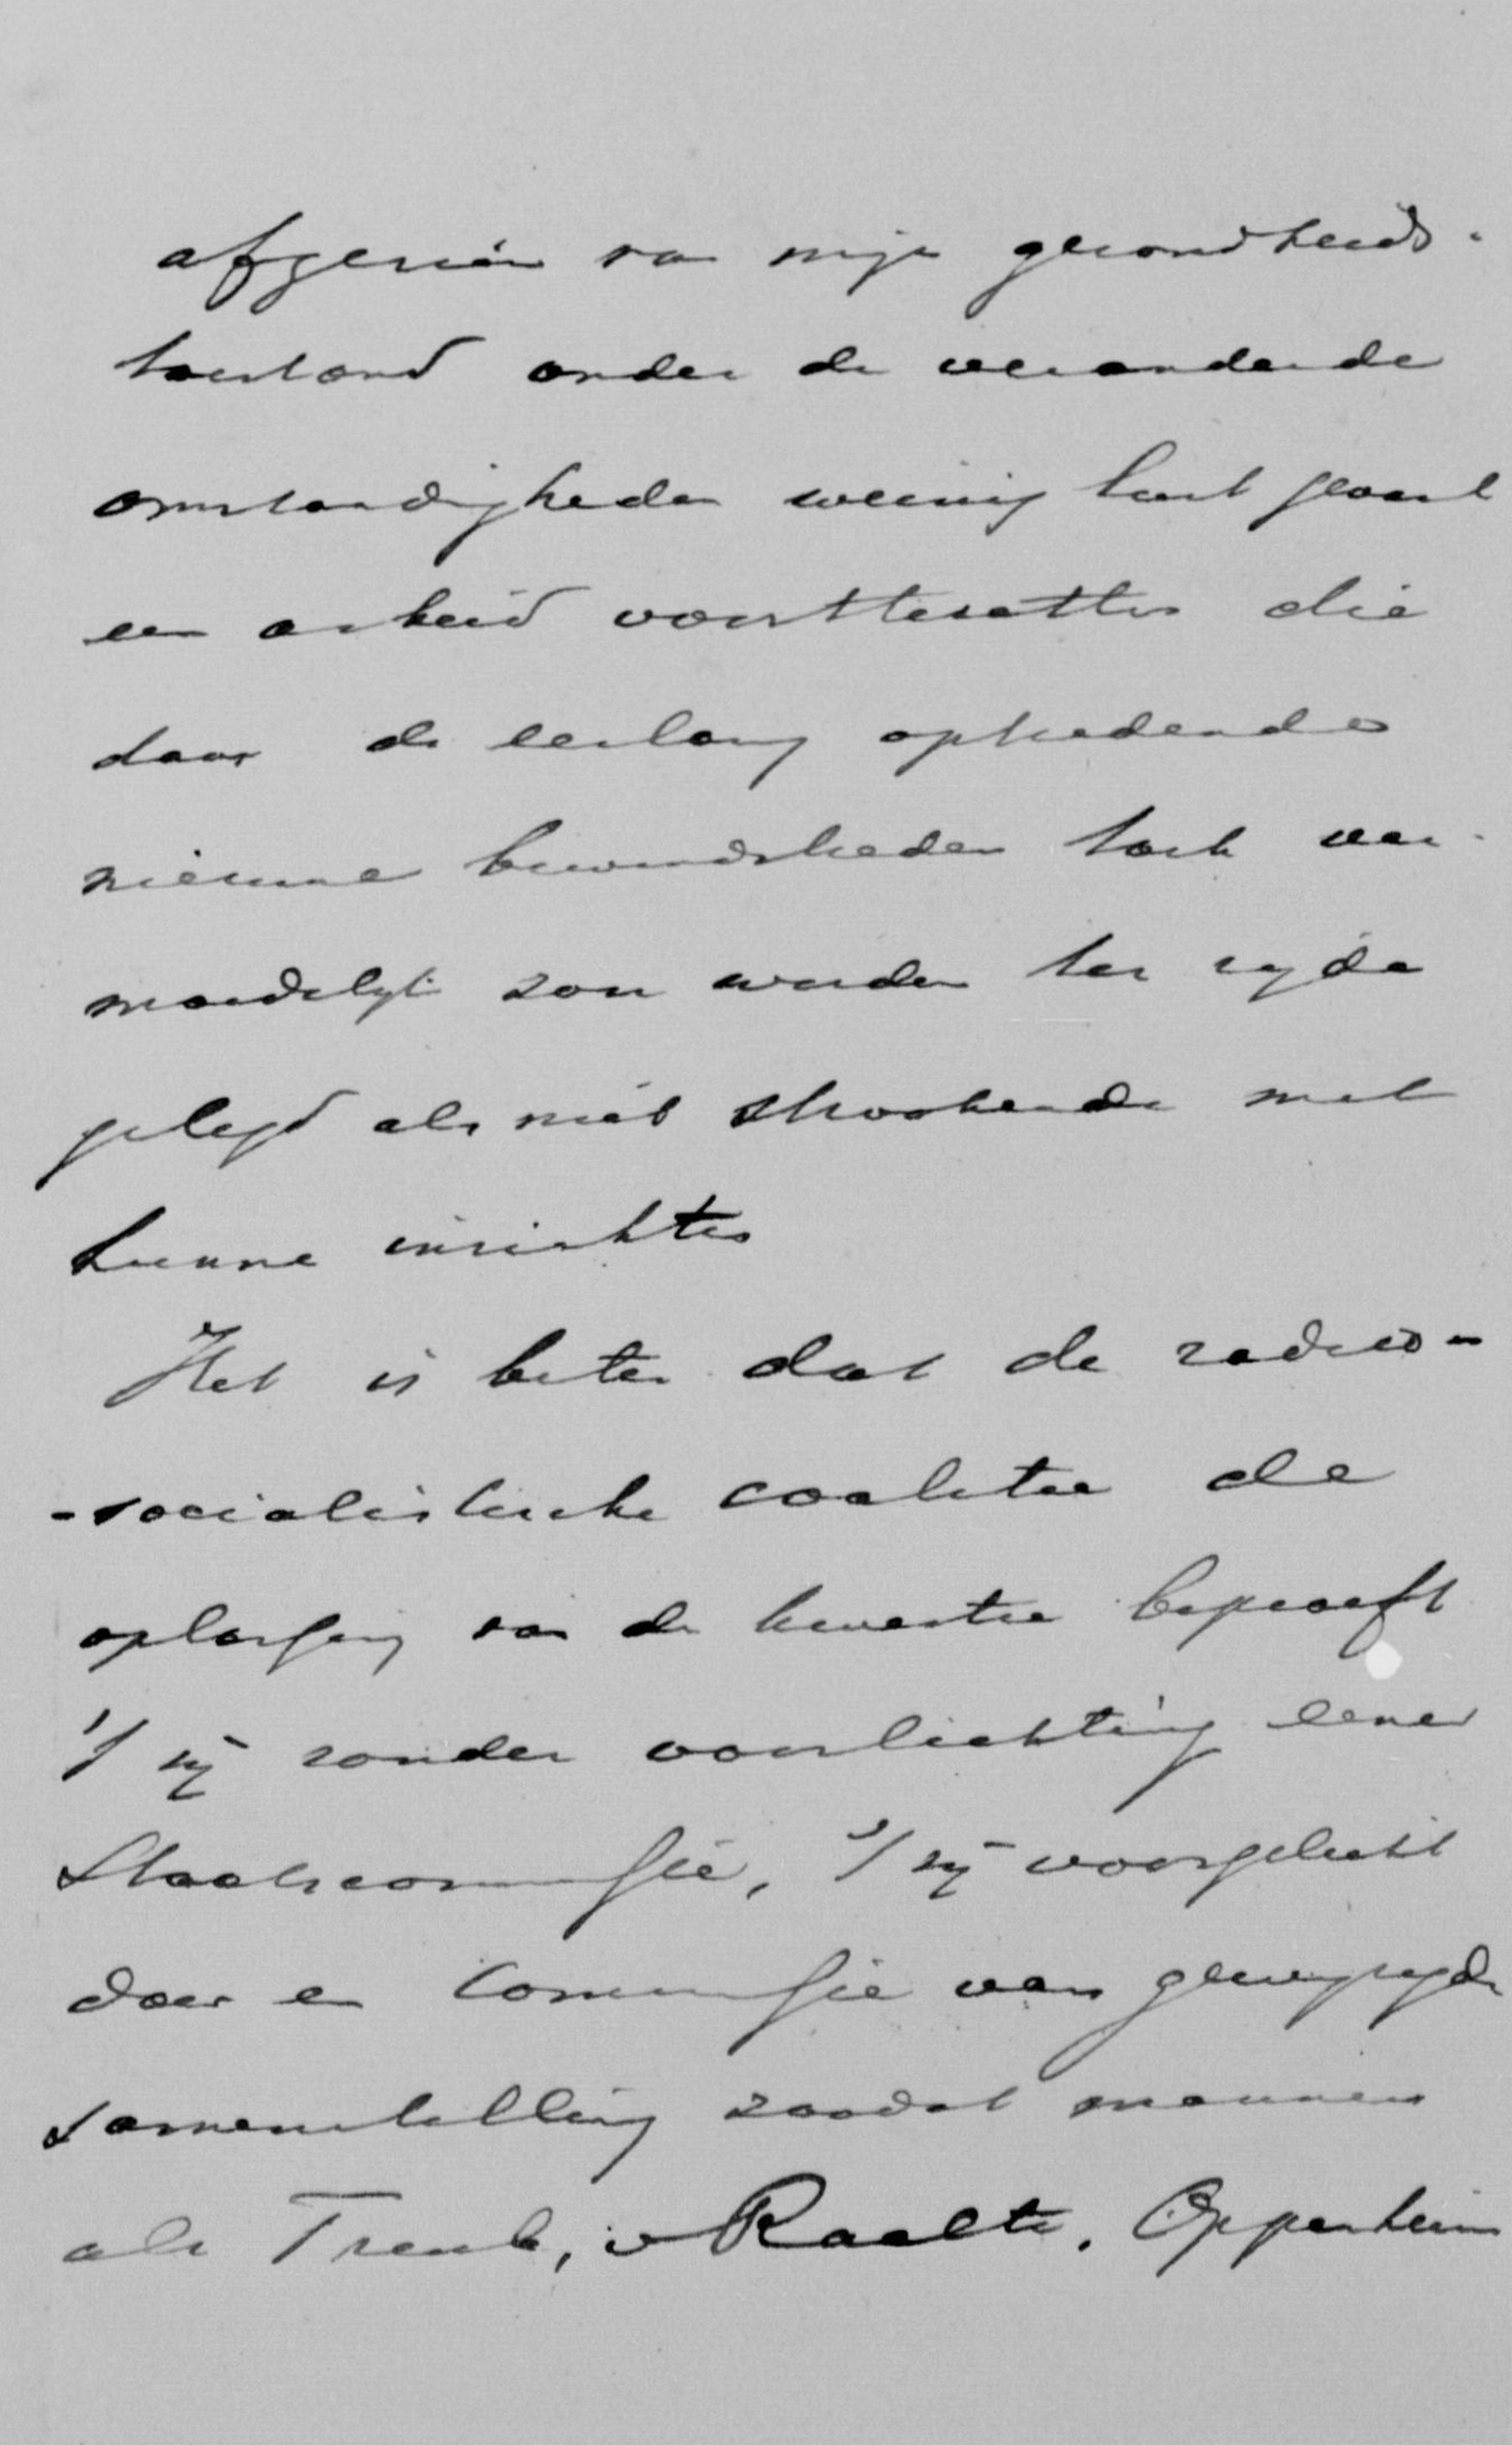 afgezien van mijn gezondheids-
toestand onder de veranderde
omstandigheden weinig lust gevoel
een arbeid voorttezetten die
door de eerlang optredende
nieuwe bewindslieden toch ver-
moedelijk zou worden ter zyde
gelegd als niet strookende met
hunne inzichten
Het is beter dat de radico-
-socialistische coalitie de
oplossing van de kwestie beproeft
't zij zonder voorlichting eener
Staatscommissie, 't zij voorgelicht
door een Commissie van gewyzigde
samenstelling zoodat mannen
als Treub, v Raalte, Oppenheim